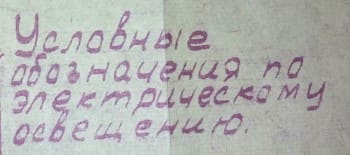 Условные
обозначения по
электрическому
освещению.